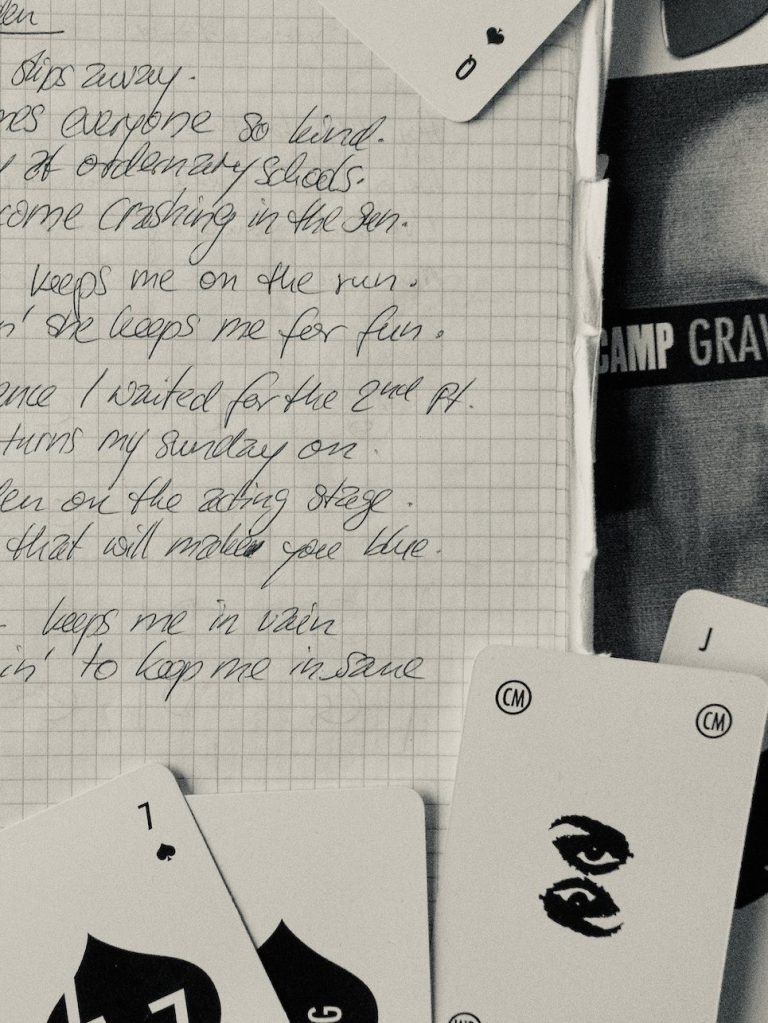 slips away.
everyone so kind.
at ordernary schools.
come crashing in the sun.
keeps me on the run.
she keeps me for fun.
I waited for the 2nd pt.
turns my sunday on
on the acting stage.
that will make you blue.
keeps me in vain
in' to keep me insane
Q
CAMP GRAV
J
CM
CM
7
7
G